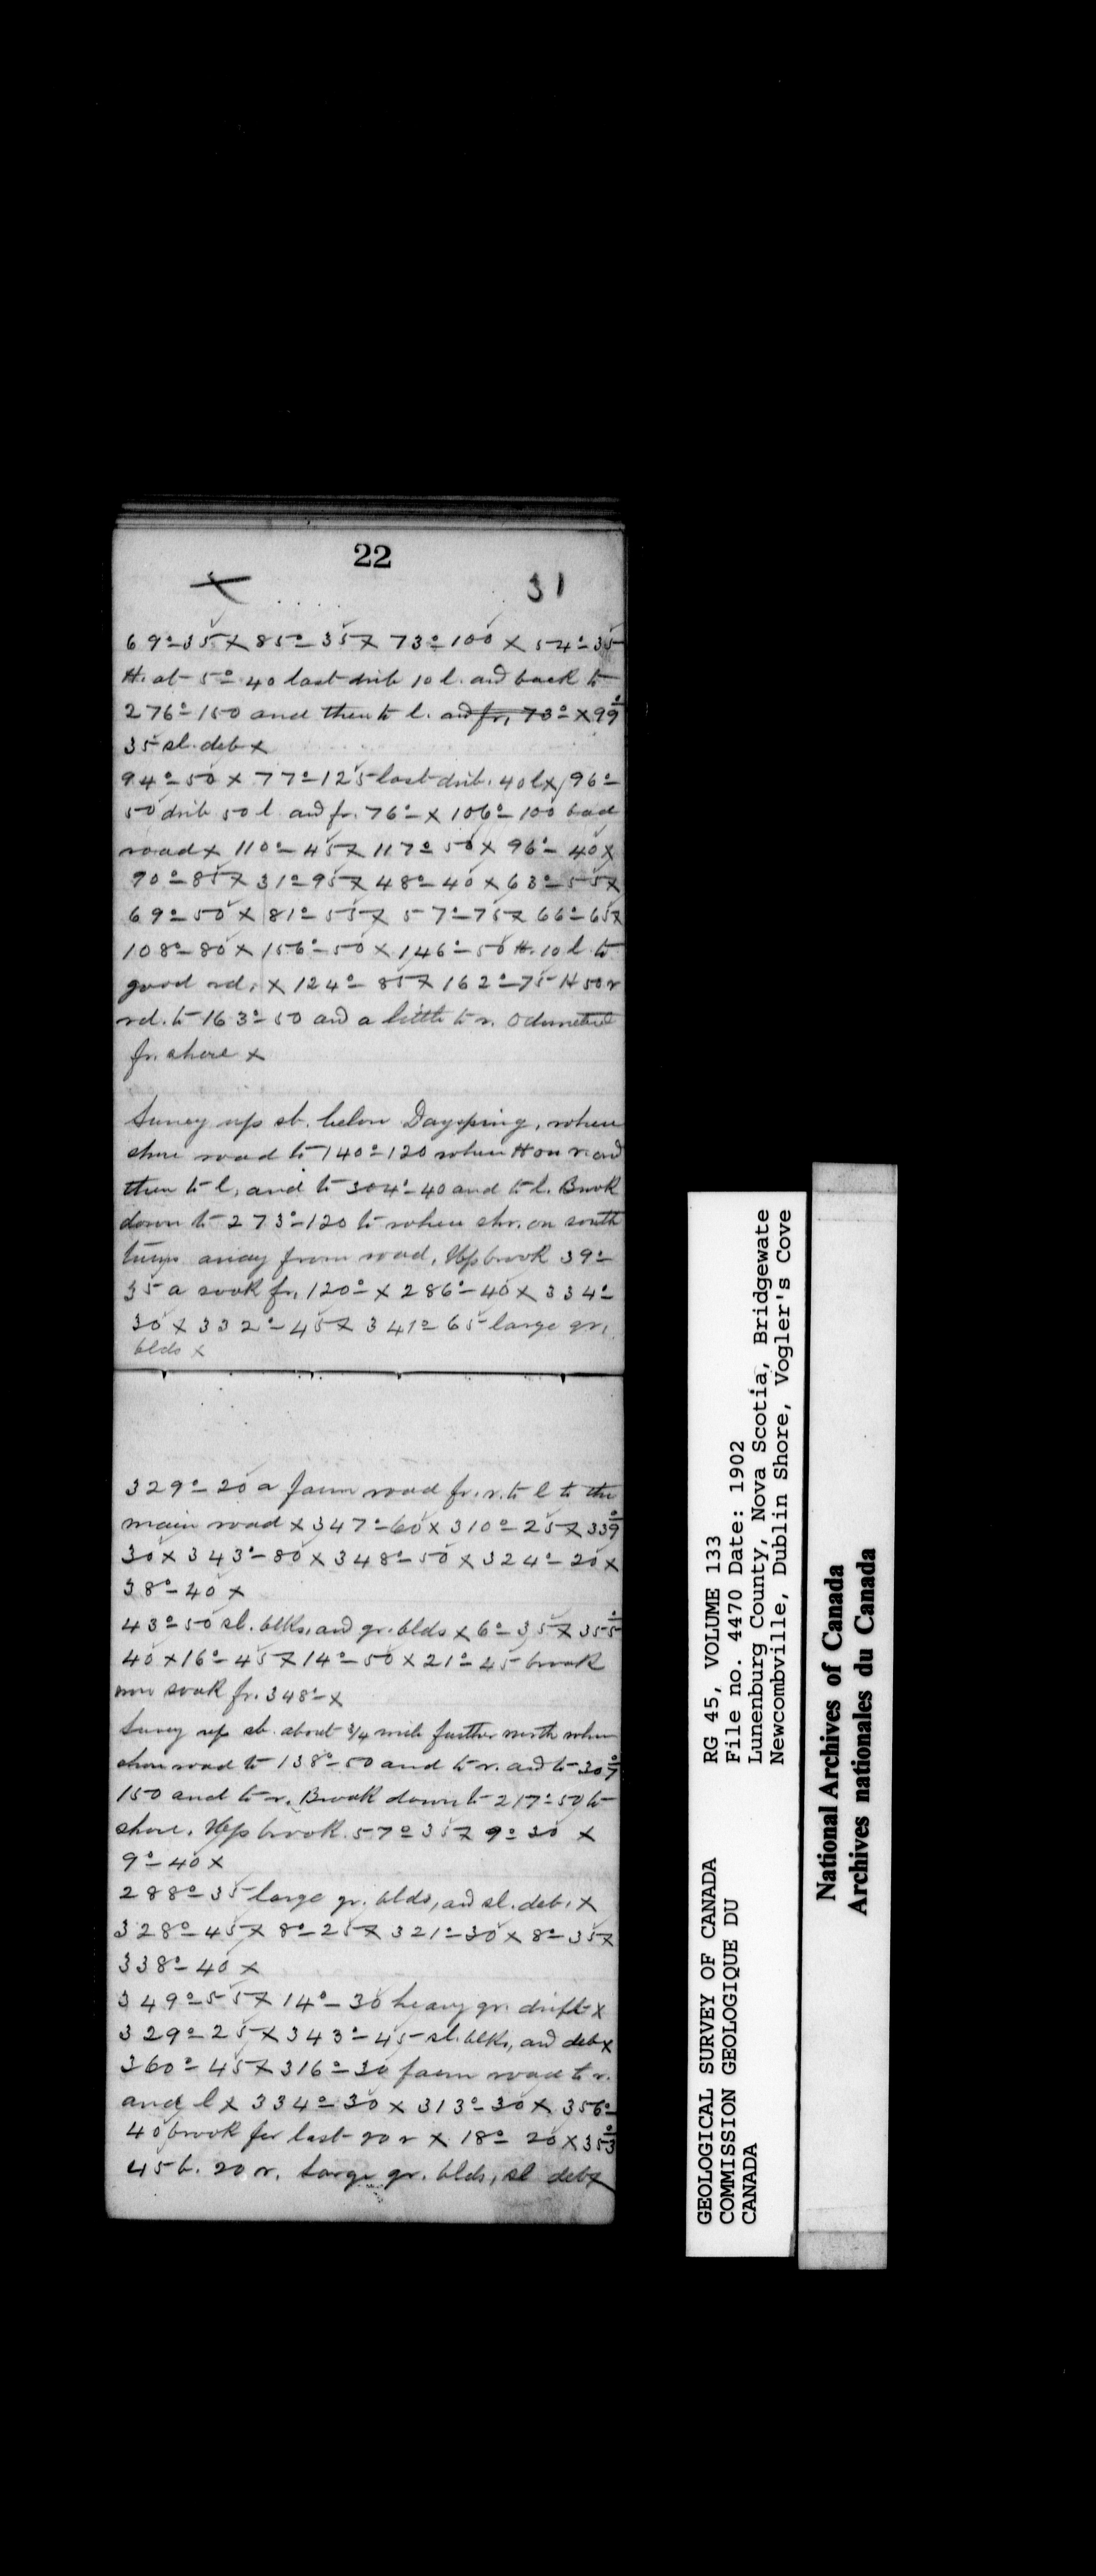 22
X 31
69°-35 X 85°-35 X 73°-100 X 54°-35
H. at 5°-40 last drib 10 l. and back to
276°-150 and then to l. and fr. 73°- X 99°
35 sl. deb X
94°-50 X 77°-125 last drib. 40 l X 96°-
50 drib 50 l and fr. 76°- X 106°-100 bad
road X 110°-45 X 117°-50 X 96°-40 X
90°-85 X 31°-95 X 48°-40 X 63°-55 X
69°-50 X 81°-55 X 57°-75 X 66°-65 X
108°-80 X 156°-50 X 146°-50 H. 10 l to
good rd. X 124°-85 X 162°-75 H 50 r
rd. to 163°-50 and a little to r. Odometred
fr. shore X
Survey up sb. below Dayspring, where
shore road to 140°-120 where H on r. and
then to l. and to 304°-40 and to l. Brook
down to 273°-120 to where shr. on south
turns away from road. Up brook 39°-
35 a sook fr. 120°- X 286°-40 X 334°-
30 X 332°-45 X 341°-65 large gr.
blds X
329°-20 a farm road fr. r. to l to the
main road X 347°-60 X 310°-25 X 339°
30 X 343°-80 X 348°-50 X 324°-20 X
38°-40 X
43°-50 sl. blks. and gr. blds X 6°-35 X 355°
40 X 16°-45 X 14°-50 X 21°-45 brook
now sook fr. 348°- X
Survey up sb. about 3/4 mile further north where
shore road to 138°-50 and to r. and to 307°
150 and to r. Brook down to 217°-50 to
shore. Up brook. 57°-35 X 9°-30 X
9°-40 X
288°-35 large gr. blds, and sl. deb. X
328°-45 X 8°-25 X 321°-30 X 8°-35 X
338°-40 X
349°-55 X 14°-30 heavy gr. drift X
329°-25 X 343°-45 sl. blks, and deb X
360°-45 X 316°-30 farm road to r.
and l X 334°-30 X 313°-30 X 356°-
40 brook for last 20 r X 18°-20 X 353°
45 b. 20 r. Large gr. blds, sl deb X
GEOLOGICAL SURVEY OF CANADA
COMMISSION GEOLOGIQUE DU
CANADA
RG 45, VOLUME 133
File no. 4470 Date: 1902
Lunenburg County, Nova Scotia, Bridgewate
Newcombville, Dublin Shore, Vogler's Cove
National Archives of Canada
Archives nationales du Canada